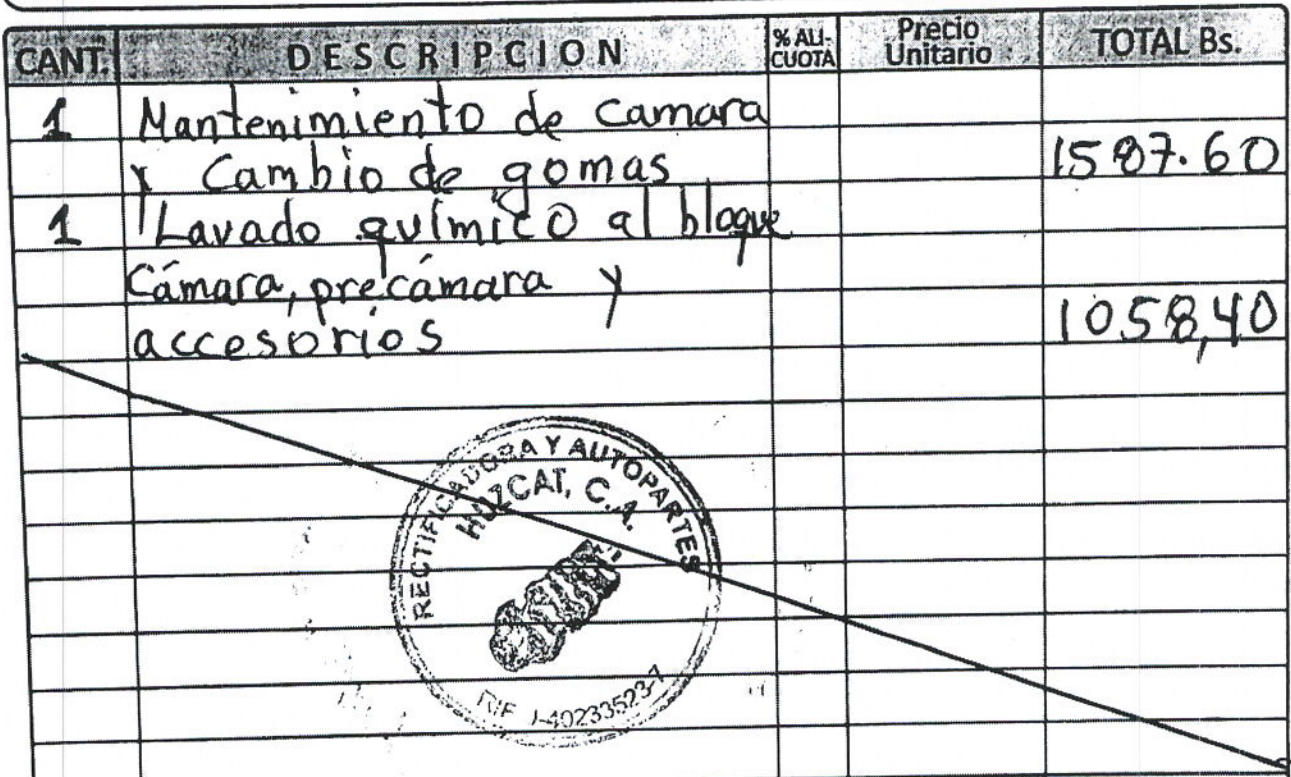 CANT. DESCRIPCION % ALI-CUOTA Precio Unitario TOTAL Bs.
1 Mantenimiento de camara
y Cambio de gomas 1587.60
1 Lavado químico al bloque
Cámara, precámara y
accesorios 1058,40
RECTIFICADORA Y AUTOPARTES
HUZCAT, C.A.
RIF J-40233523-7